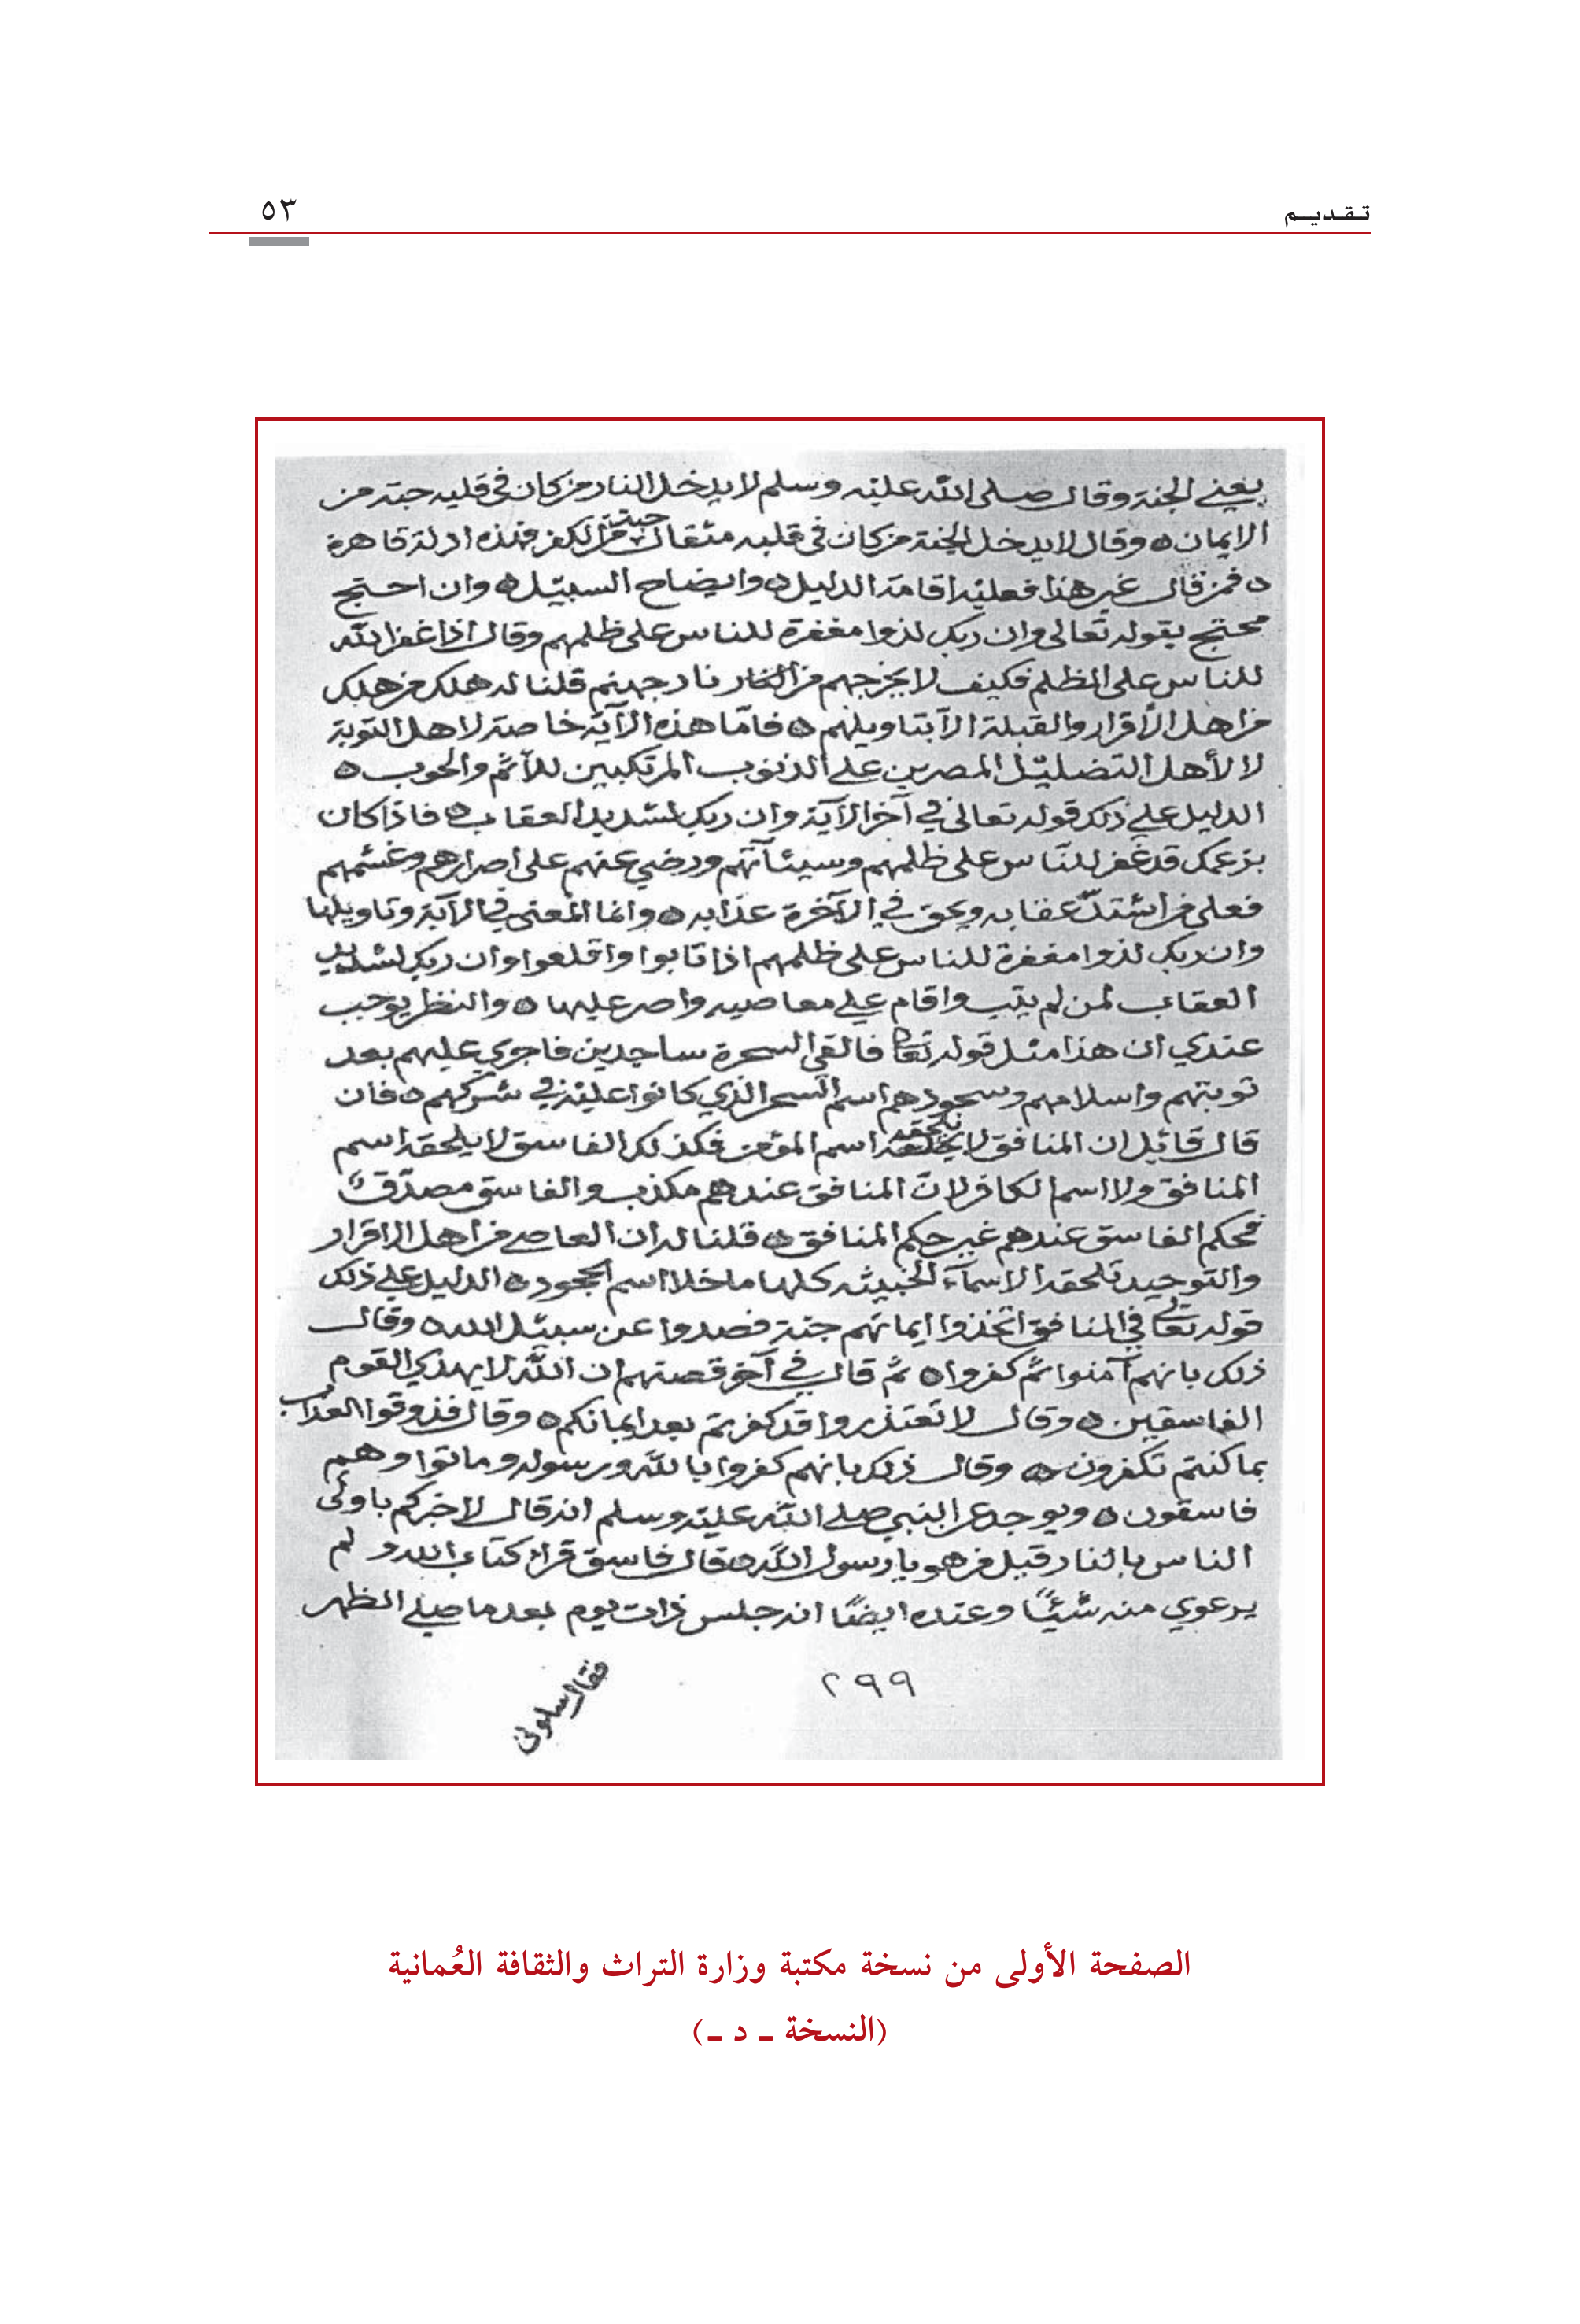 تقديم
٥٣
يعني الجنة وقال صلى الله عليه وسلم لا يدخل النار من كان في قلبه حبة من
الايمان ه وقال لا يدخل الجنة من كان في قلبه مثقال حبة من الكفر فهذه ادلة قاهرة
ه فمن قال غير هذا فعليه اقامة الدليل ه وايضاح السبيل ه وان احتج
محتج بقوله تعالى وان ربك لذوا مغفرة للناس على ظلمهم وقال اذا غفر الله
للناس على الظلم فكيف لا يخرجهم من نار جهنم قلنا له هلك من هلك
من اهل الأقرار والقبلة الا بتاويلهم ه فامّا هذه الآية خاصة لاهل التوبة
لا لأهل التضليل المصرين على الذنوب المرتكبين للآثم والحوب ه
الدليل على ذلك قوله تعالى في آخر الآية وان ربك لشديد العقاب ه فاذا كان
بزعمك قد غفر للنّاس على ظلمهم وسيئآتهم ورضي عنهم على اصرارهم وغشمهم
فعلى من اشتدّ عقابه ويحق في الآخرة عذابه ه وانما المعنى في الآية وتاويلها
وان ربك لذوا مغفرة للناس على ظلمهم اذا تابوا واقلعوا وان ربك لشديد
العقاب لمن لم يتب واقام على معاصيه واصر عليها ه والنظر يوجب
عندي ان هذا مثل قوله تعالى فالقي السحرة ساجدين فاجري عليهم بعد
توبتهم واسلامهم وسجودهم اسم السحر الذي كانوا عليه في شركهم ه فان
قال قائل ان المنافق لا يلحقه اسم المؤمن فكذلك الفاسق لا يلحقه اسم
المنافق ولا اسم الكافر لانّ المنافق عندهم مكذب والفاسق مصدّق
فحكم الفاسق عندهم غير حكم المنافق ه قلنا له ان العاصي من اهل الاقرار
والتوحيد تلحقه الاسمآء الخبيثه كلها ما خلا اسم الجحود ه الدليل على ذلك
قوله تعالى في المنافق اتخذوا ايمانهم جنة فصدوا عن سبيل الله ه وقال
ذلك بانهم آمنوا ثم كفروا ه ثم قال في آخر قصتهم ان الله لا يهدي القوم
الفاسقين ه وقال لا تعتذروا قد كفرتم بعد ايمانكم ه وقال فذوقوا العذاب
بما كنتم تكفرون ه وقال ذلك بانهم كفروا بالله ورسوله وماتوا وهم
فاسقون ه ويوجد عن النبي صلى الله عليه وسلم انه قال لاخبركم باولى
الناس بالنار قيل من هو يا رسول الله فقال فاسق قرأ كتاب الله ولم
يرعوي منه شيئًا وعنه ايضًا انه جلس ذات يوم بعد ما صلى الظهر
فقال سلوني
٢٩٩
الصفحة الأولى من نسخة مكتبة وزارة التراث والثقافة العُمانية
(النسخة ـ د ـ)